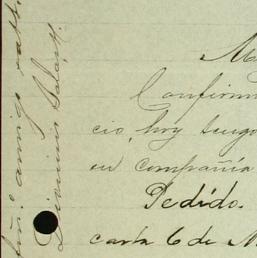 M
Confirm
cio, hoy tengo
en compañía
Pedido.
carta 6 de M
amigo